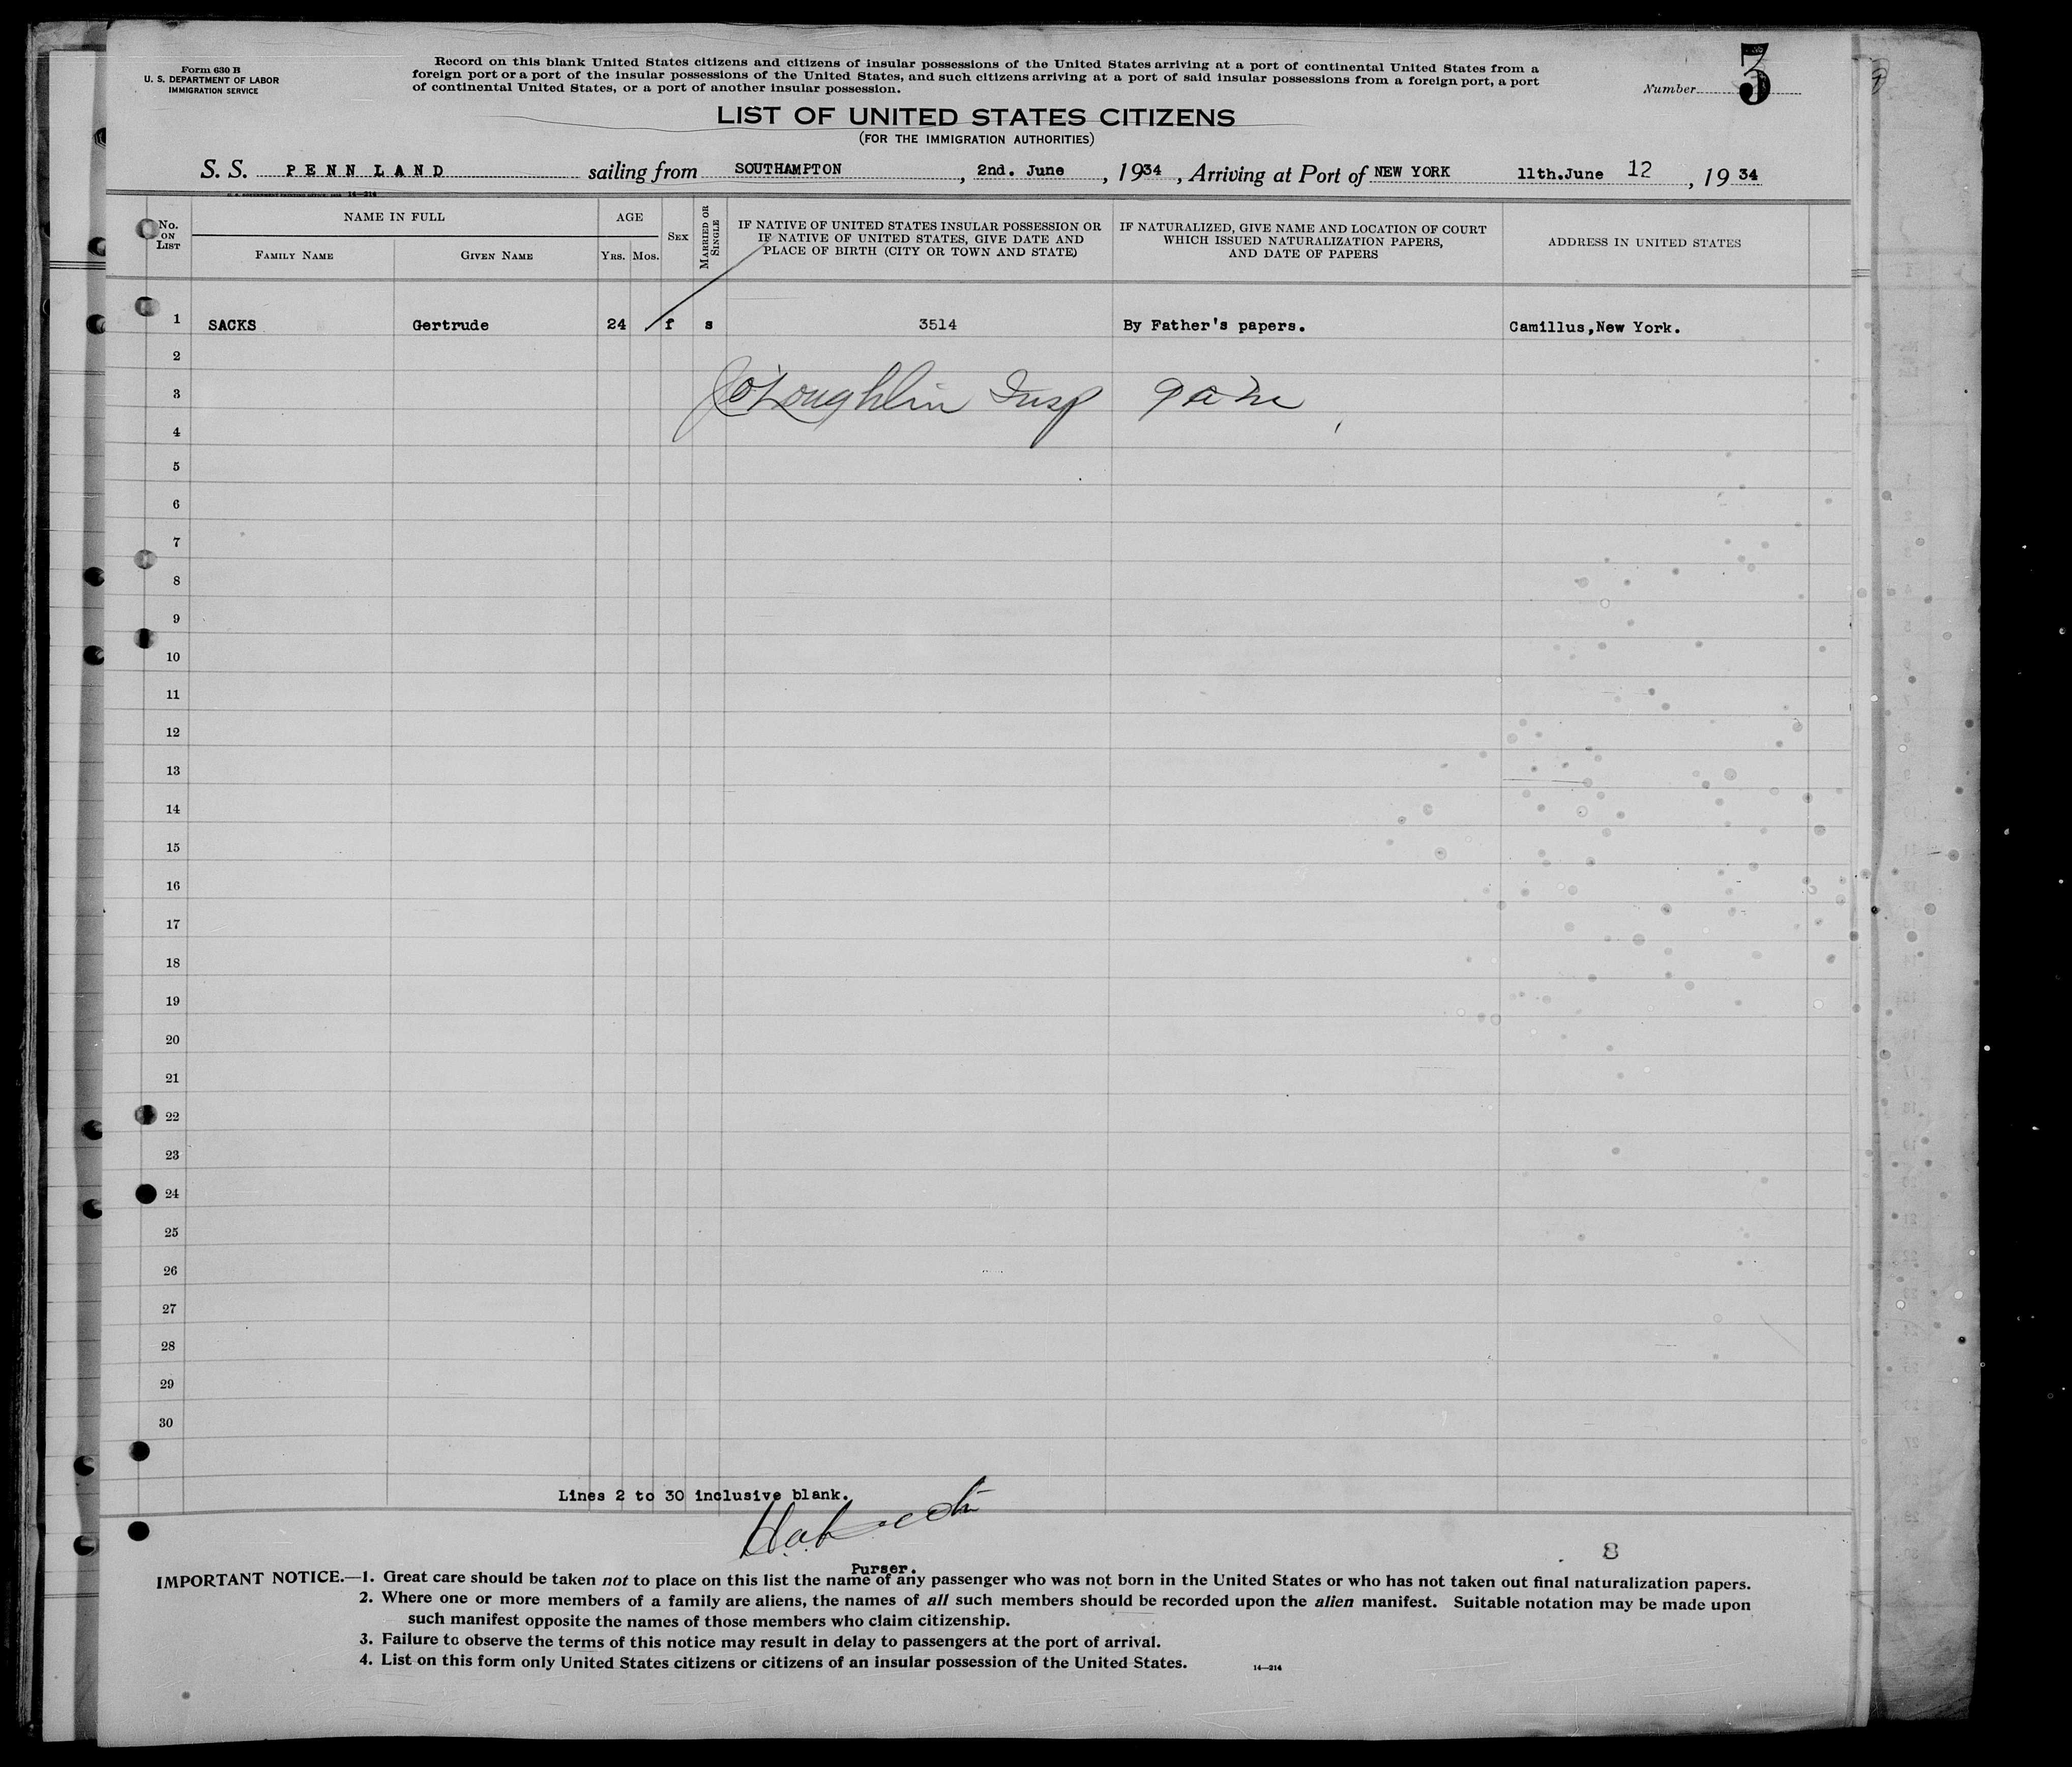 Form 630 B
U. S. DEPARTMENT OF LABOR
IMMIGRATION SERVICE
Record on this blank United States citizens and citizens of insular possessions of the United States arriving at a port of continental United States from a
foreign port or a port of the insular possessions of the United States, and such citizens arriving at a port of said insular possessions from a foreign port, a port
of continental United States, or a port of another insular possession.
Number 3
LIST OF UNITED STATES CITIZENS
(FOR THE IMMIGRATION AUTHORITIES)
S. S. PENNLAND sailing from SOUTHAMPTON, 2nd. June, 1934, Arriving at Port of NEW YORK 11th.June 12, 1934
No. ON LIST
NAME IN FULL
FAMILY NAME
GIVEN NAME
AGE
YRS. MOS.
SEX
MARRIED OR SINGLE
IF NATIVE OF UNITED STATES INSULAR POSSESSION OR
IF NATIVE OF UNITED STATES, GIVE DATE AND
PLACE OF BIRTH (CITY OR TOWN AND STATE)
IF NATURALIZED, GIVE NAME AND LOCATION OF COURT
WHICH ISSUED NATURALIZATION PAPERS,
AND DATE OF PAPERS
ADDRESS IN UNITED STATES
1 SACKS Gertrude 24 f s 3514 By Father's papers. Camillus,New York.
2
3 O'Loughlin Insp
4
5
6
7
8
9
10
11
12
13
14
15
16
17
18
19
20
21
22
23
24
25
26
27
28
29
30
Lines 2 to 30 inclusive blank.
Purser.
8
IMPORTANT NOTICE.—1. Great care should be taken not to place on this list the name of any passenger who was not born in the United States or who has not taken out final naturalization papers.
2. Where one or more members of a family are aliens, the names of all such members should be recorded upon the alien manifest. Suitable notation may be made upon
such manifest opposite the names of those members who claim citizenship.
3. Failure to observe the terms of this notice may result in delay to passengers at the port of arrival.
4. List on this form only United States citizens or citizens of an insular possession of the United States.
14—214